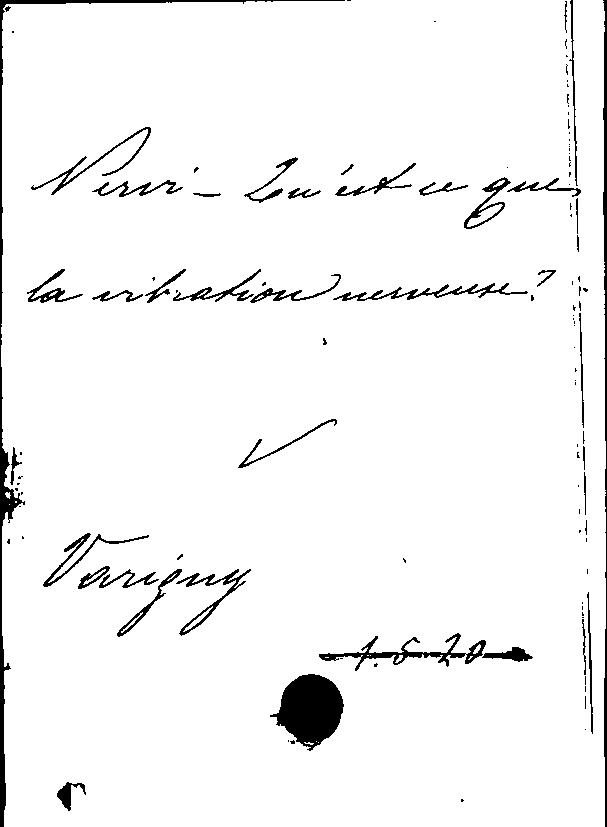 Nervi - Qu'est ce que
la vibration nerveuse?
Varigny
1.5.20